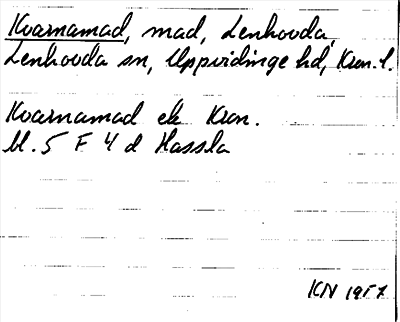 Kvarnamad, mad, Lenhovda,
Lenhovda sn, Uppvidinge hd, Kron. l.
Kvarnamad ek Kron.
bl. 5 F 4 d Hassla
KN 1957